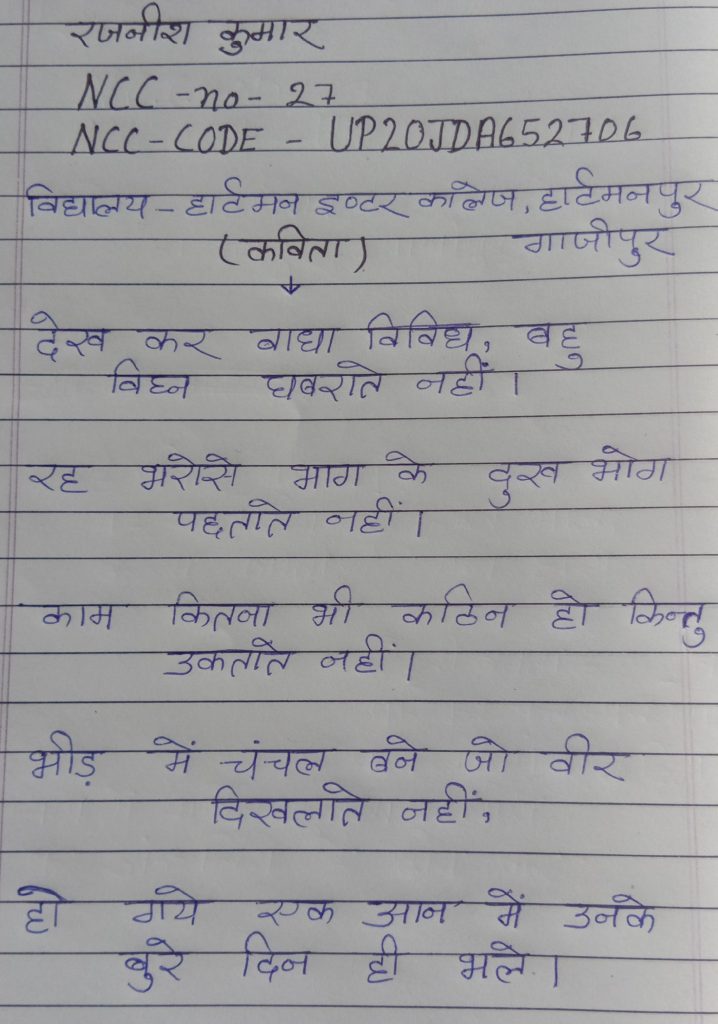 रजनीश कुमार
NCC - no - 27
NCC - CODE - UP20JDA652706
विद्यालय - हार्टमन इण्टर कालेज, हार्टमनपुर
(कविता) गाजीपुर
↓
देख कर बाधा विविध, बहु
विघ्न घबराते नहीं।
रह भरोसे भाग के दुख भोग
पछताते नहीं।
काम कितना भी कठिन हो किन्तु
उकताते नहीं।
भीड़ में चंचल बने जो वीर
दिखलाते नहीं,
हो गये एक आन में उनके
बुरे दिन ही भले।